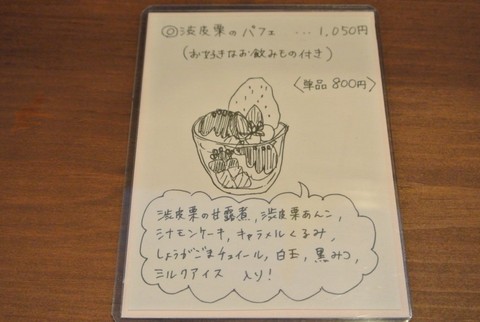 ◎渋皮栗のパフェ … 1,050円
(お好きなお飲みもの付き)
〈単品 800円〉
渋皮栗の甘露煮, 渋皮栗あんこ,
シナモンケーキ, キャラメルくるみ,
しょうがごまチュイール, 白玉, 黒みつ,
ミルクアイス 入り!